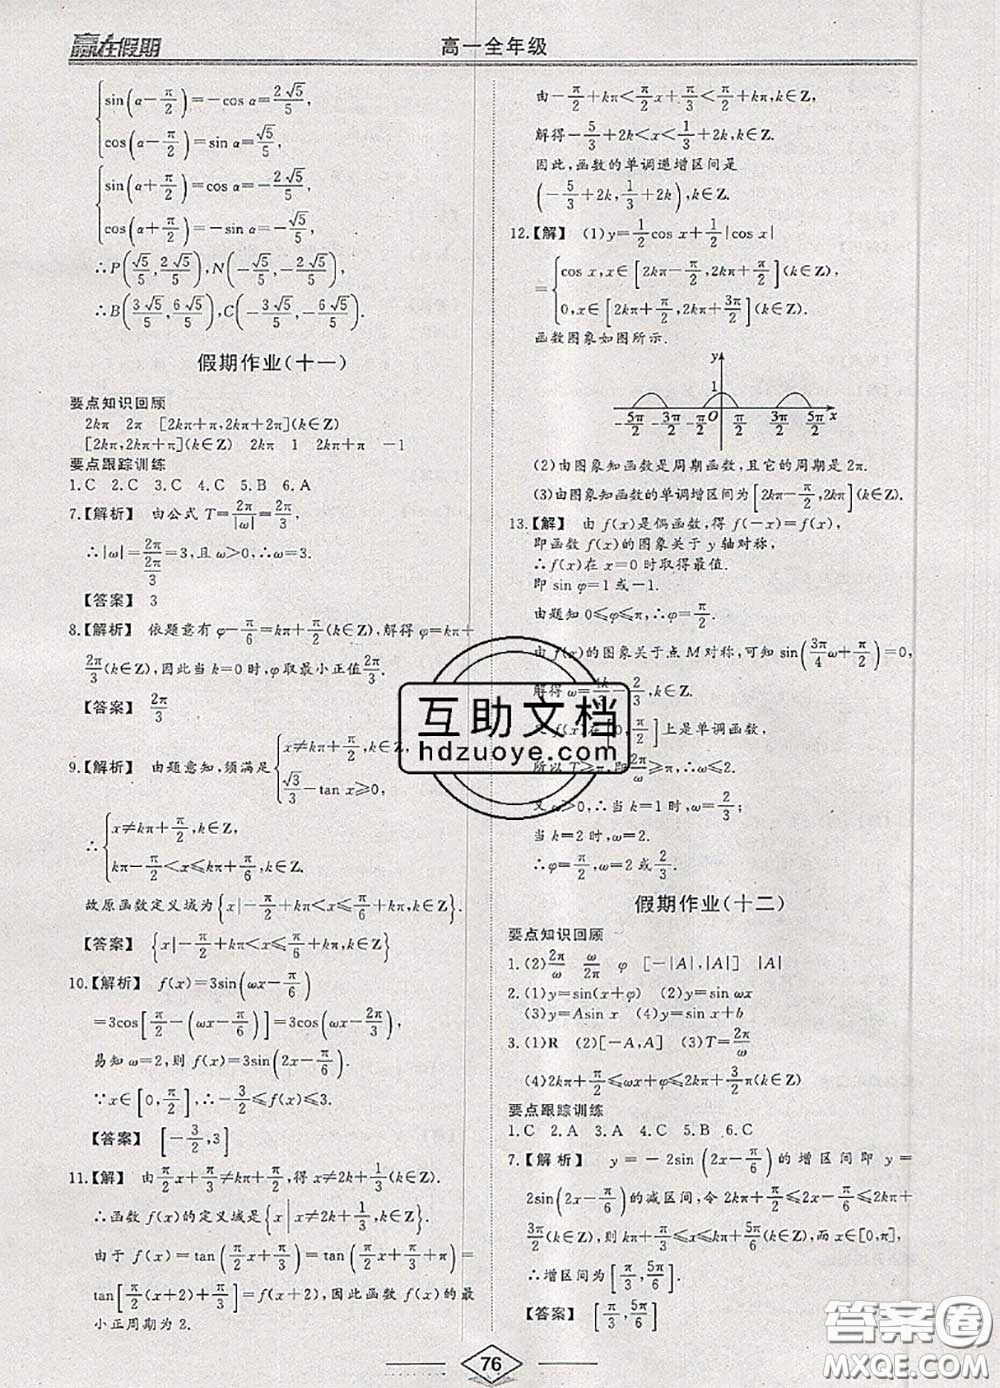 赢在假期
高一全年级
sin(α-π/2)=-cos α=2√5/5,
cos(α-π/2)=sin α=√5/5,
sin(α+π/2)=cos α=-√5/5,
cos(α+π/2)=-sin α=-√5/5,
∴P(√5/5,2√5/5),N(-√5/5,-2√5/5),
∴B(3√5/5,6√5/5),C(-3√5/5,-6√5/5).
假期作业(十一)
要点知识回顾
2kπ 2π [2kπ+π,2kπ+2π](k∈Z)
[2kπ,2kπ+π](k∈Z) 2kπ 1 2kπ+π -1
要点跟踪训练
1.C 2.C 3.C 4.C 5.B 6.A
7.【解析】 由公式 T=2π/|ω|=2π/3,
∴|ω|=2π/(2π/3)=3,且 ω>0,∴ω=3.
【答案】 3
8.【解析】 依题意有 φ-π/6=kπ+π/2(k∈Z),解得 φ=kπ+
2π/3(k∈Z),因此当 k=0 时,φ取最小正值2π/3.
【答案】 2π/3
9.【解析】 由题意知,须满足{x≠kπ+π/2,k∈Z,
√3/3-tan x≥0,
∴{x≠kπ+π/2,k∈Z,
kπ-π/2<x≤kπ+π/6,k∈Z.
故原函数定义域为{x|-π/2+kπ<x≤π/6+kπ,k∈Z}.
【答案】 {x|-π/2+kπ<x≤π/6+kπ,k∈Z}
10.【解析】 f(x)=3sin(ωx-π/6)
=3cos[π/2-(ωx-π/6)]=3cos(ωx-2π/3),
易知 ω=2,则 f(x)=3sin(2x-π/6).
∵x∈[0,π/2],∴-3/2≤f(x)≤3.
【答案】 [-3/2,3]
11.【解】 由π/2x+π/3≠kπ+π/2,得 x≠2k+1/3(k∈Z).
∴函数 f(x)的定义域是{x|x≠2k+1/3,k∈Z}.
由于 f(x)=tan(π/2x+π/3)=tan(π/2x+π/3+π)=
tan[π/2(x+2)+π/3]=f(x+2),因此函数 f(x)的最
小正周期为 2.
由-π/2+kπ<π/2x+π/3<π/2+kπ,k∈Z,
解得-5/3+2k<x<1/3+2k,k∈Z.
因此,函数的单调递增区间是
(-5/3+2k,1/3+2k),k∈Z.
12.【解】 (1)y=1/2cos x+1/2|cos x|
={cos x,x∈[2kπ-π/2,2kπ+π/2](k∈Z),
0,x∈[2kπ+π/2,2kπ+3π/2](k∈Z).
函数图象如图所示.
y
1
-5π/2 -3π/2 -π/2 O π/2 3π/2 5π/2 x
(2)由图象知函数是周期函数,且它的周期是 2π.
(3)由图象知函数的单调增区间为[2kπ-π/2,2kπ](k∈Z).
13.【解】 由 f(x)是偶函数,得 f(-x)=f(x),
即函数 f(x)的图象关于 y 轴对称,
∴f(x)在 x=0 时取得最值.
即 sin φ=1 或-1.
由题知 0≤φ≤π,∴φ=π/2.
由 f(x)的图象关于点 M 对称,可知 sin(3π/4ω+π/2)=0,
解得 ω=4k/3-2/3,k∈Z.
又 f(x)在[0,π/2]上是单调函数,
所以 T≥π,即2π/ω≥π,∴ω≤2.
又 ω>0,∴当 k=1 时,ω=2/3;
当 k=2 时,ω=2.
∴φ=π/2,ω=2 或2/3.
假期作业(十二)
要点知识回顾
1.(2)2π/ω ω/2π φ [-|A|,|A|] |A|
2.(1)y=sin(x+φ) (2)y=sin ωx
(3)y=Asin x (4)y=sin x+b
3.(1)R (2)[-A,A] (3)T=2π/ω
(4)2kπ+π/2≤ωx+φ≤2kπ+3π/2(k∈Z)
要点跟踪训练
1.C 2.A 3.A 4.C 5.B 6.C
7.【解析】 y=-2sin(2x-π/6)的增区间即 y=
2sin(2x-π/6)的减区间,令 2kπ+π/2≤2x-π/6≤2kπ+
3π/2(k∈Z),则 kπ+π/3≤x≤kπ+5π/6(k∈Z),而 x∈[0,π],
∴增区间为[π/3,5π/6].
【答案】 [π/3,5π/6]
76
互助文档
hdzuoye.com
答案圈
MXQE.COM